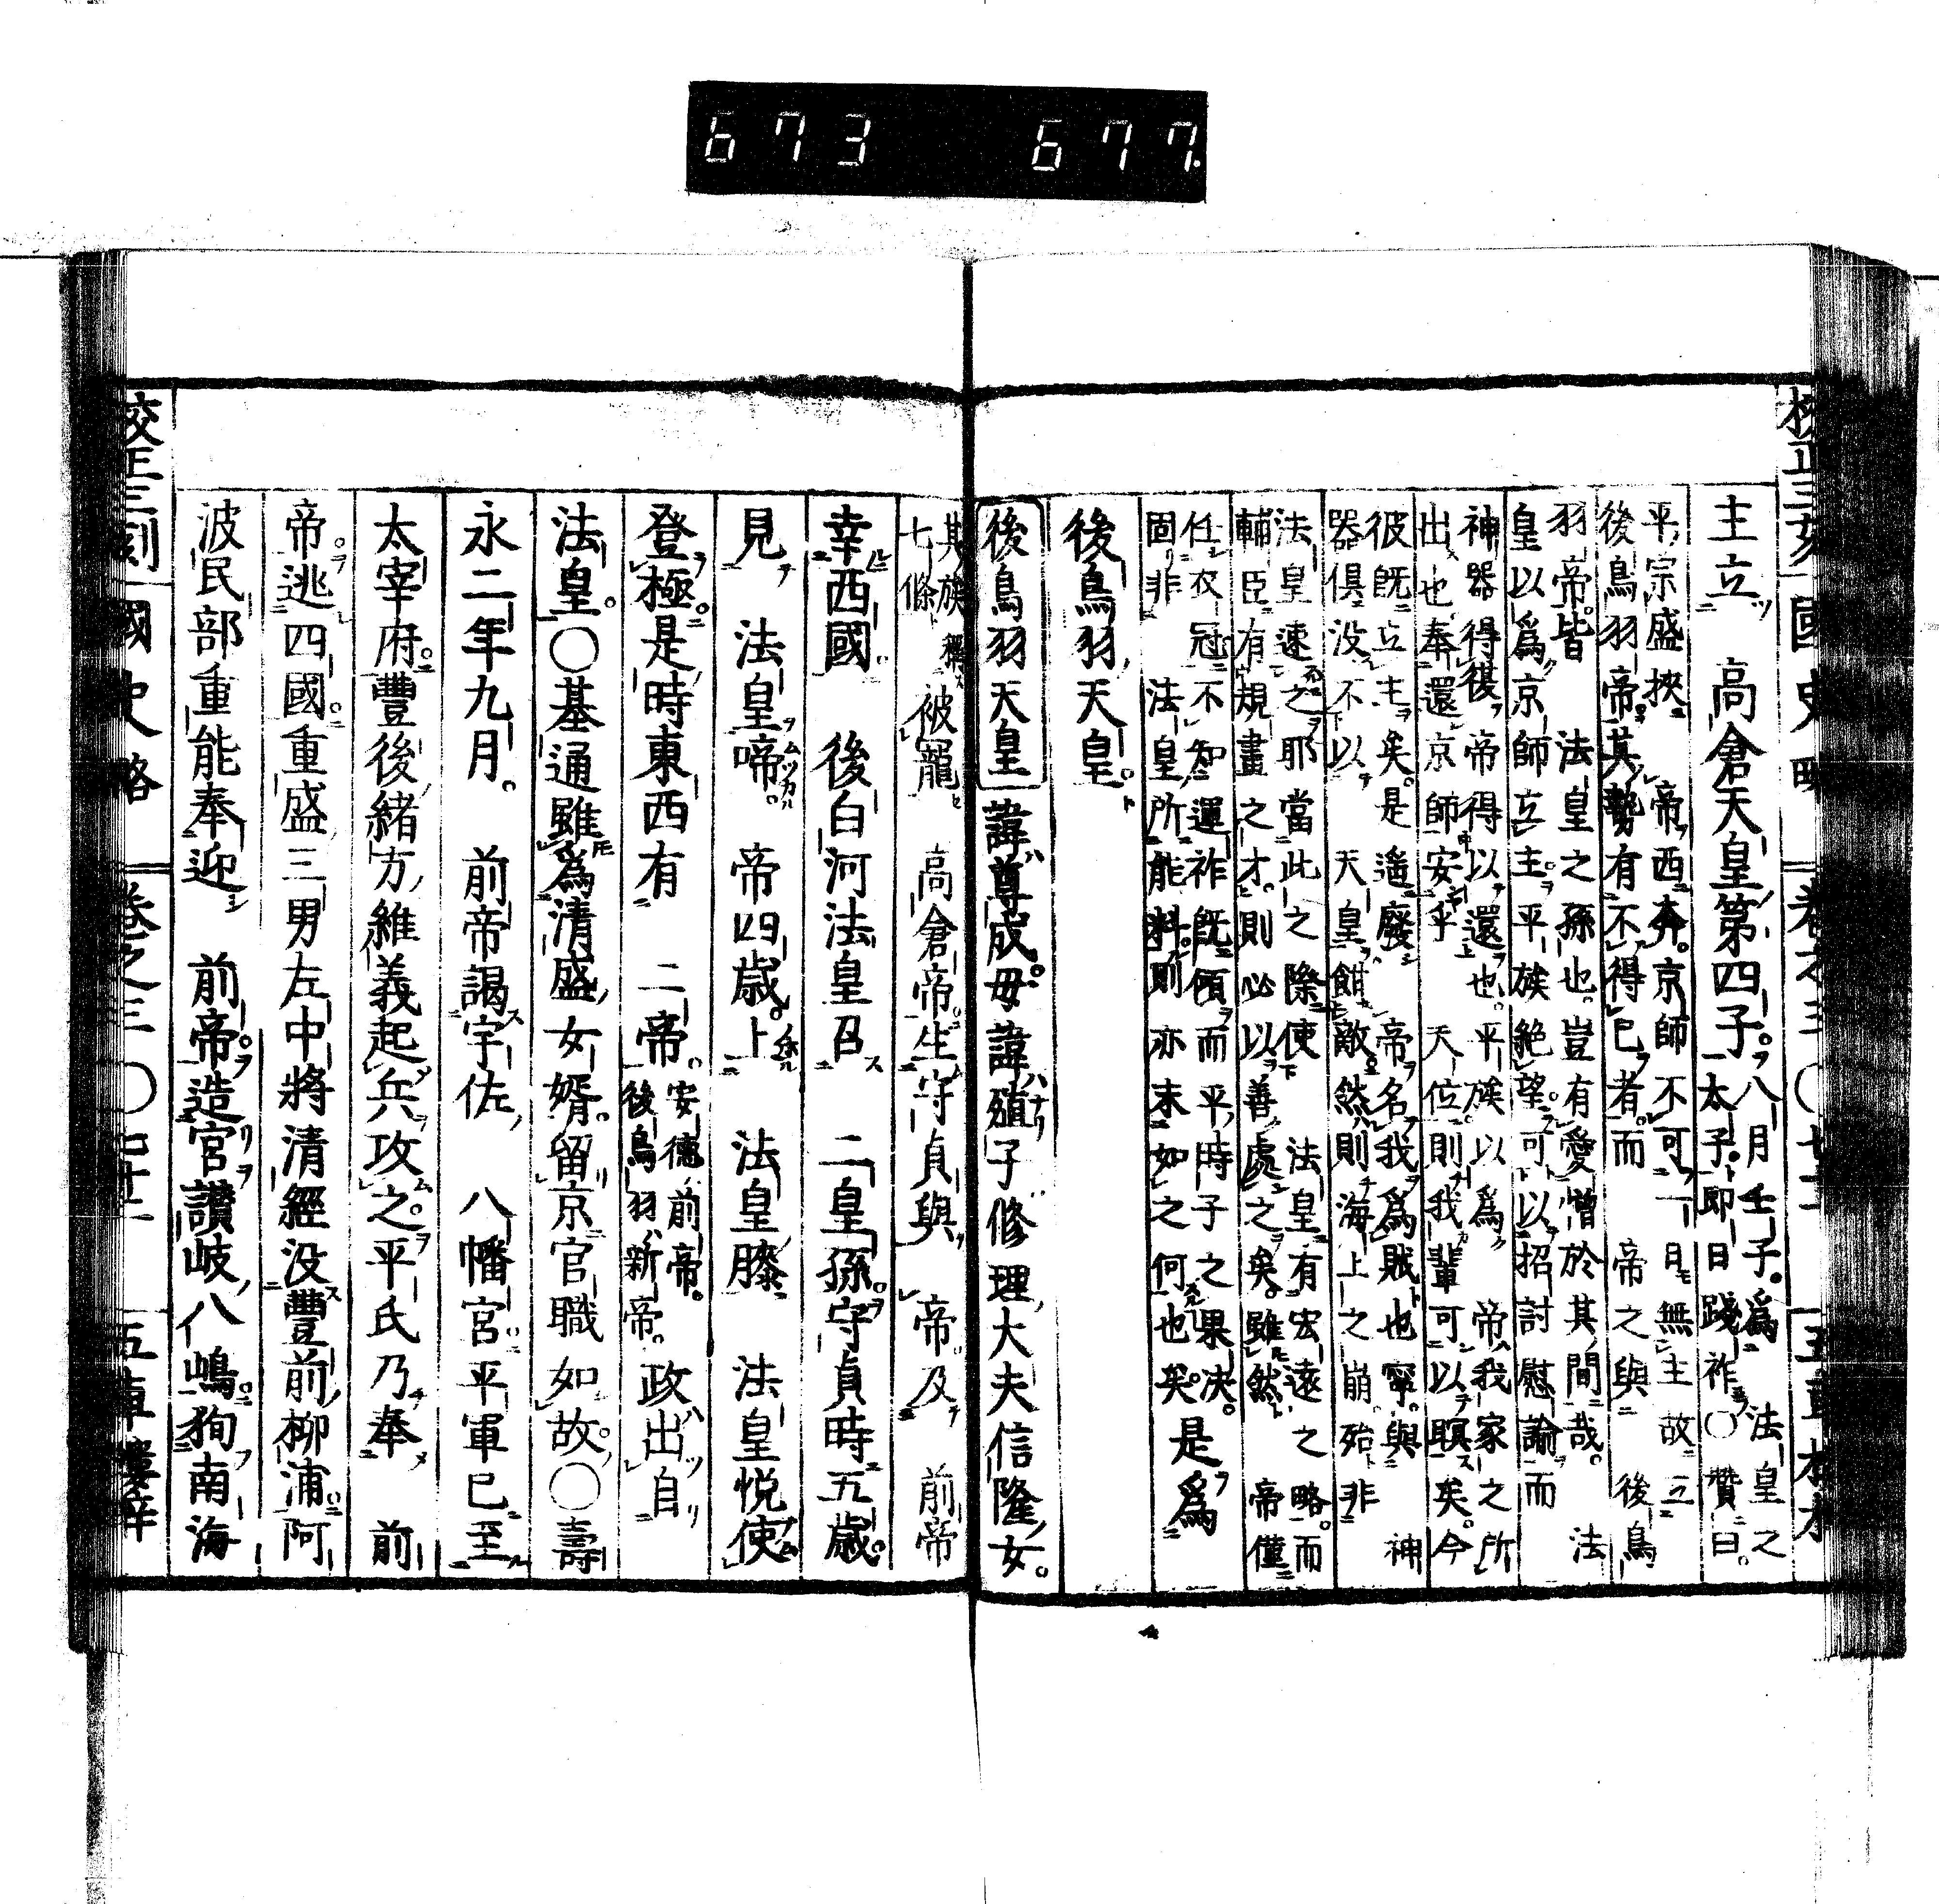 673 677
國史略 卷之三〇
主立 高倉天皇第四子
八月壬子爲 法皇之
太子卽日踐祚〇贊曰
平宗盛挾 帝西奔京師不可一日無主故立
後鳥羽帝其勢有不得已者而 帝之與 後鳥
羽帝皆 法皇之孫也豈有愛憎於其間哉 法
皇以爲京師立主平族絶望可以招討慰諭而
神器得復帝得以還也平族以爲 帝我家之所
出也奉還京師安乎 天位則我輩可以瞑矣今
彼旣立主矣是遙廢 帝名我爲賊也寧與 神
器俱沒不以 天皇餌敵然則海上之崩殆非
法皇速之耶當此之際使 法皇有宏遠之略而
輔臣有規畫之才則必以善處之矣雖然 帝僅
任衣冠不知運祚旣傾而平時子之果決
固非 法皇所能料則亦末如之何也矣
是爲
後鳥羽天皇
後鳥羽天皇 諱尊成母諱殖子修理大夫信隆女
其族
七條
被寵 高倉帝生守貞與 帝及 前帝
幸西國 後白河法皇召 二皇孫守貞時五歲
見 法皇啼 帝四歲上 法皇膝 法皇悅使
登極是時東西有 二帝
安德前帝
後鳥羽新帝
政出自
法皇〇基通雖爲清盛女婿留京官職如故〇壽
永二年九月 前帝謁宇佐 八幡宮平軍已至
太宰府豐後緒方維義起兵攻之平氏乃奉 前
帝逃四國重盛三男左中將清經沒豐前柳浦阿
波民部重能奉迎 前帝造宮讚岐八嶋狥南海
校正三刻 國史略 卷之三〇 五車樓梓